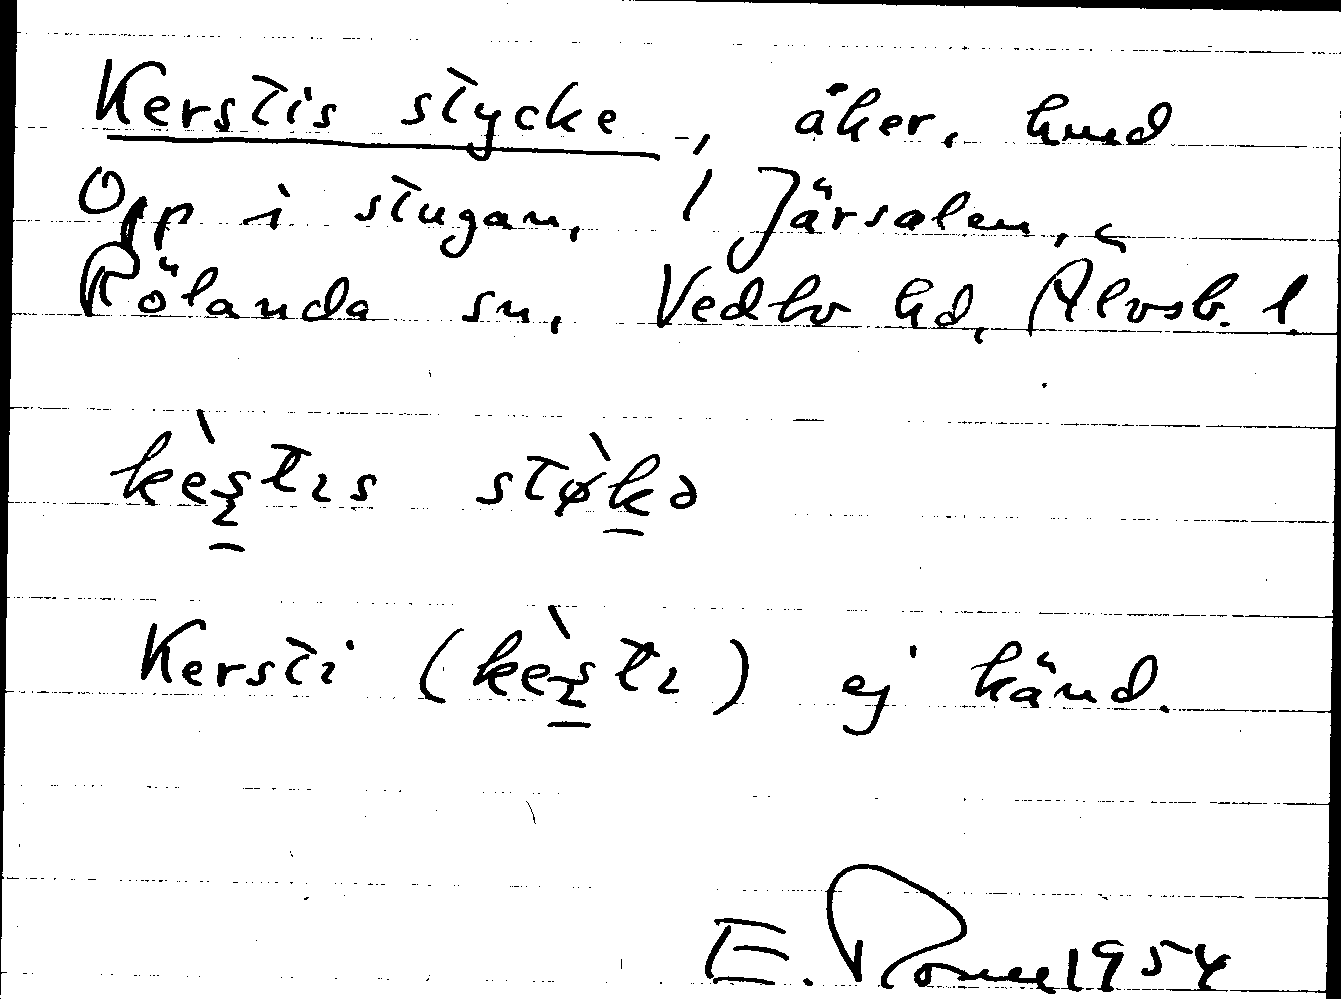 Kerstis stycke, åker, hmd
Opp i stugan, 1 Järsalem,
Rölanda sn, Vedbo hd, Älvsb. l.
kèʂtɩs stø̀kə
Kersti (kèʂtɩ) ej känd.
E. 1954